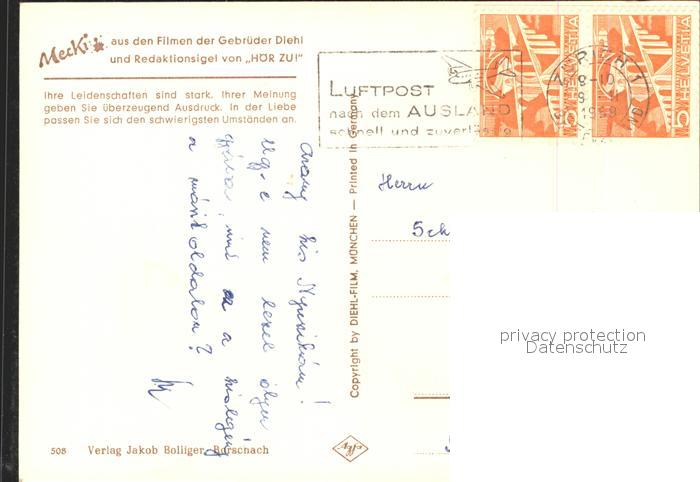 Mecki aus den Filmen der Gebrüder Diehl
und Redaktionsigel von „HÖR ZU!"
Ihre Leidenschaften sind stark. Ihrer Meinung
geben Sie überzeugend Ausdruck. In der Liebe
passen Sie sich den schwierigsten Umständen an.
LUFTPOST
nach dem AUSLAND
schnell und zuverlässig
HELVETIA
5
HELVETIA
5
Arany kis
Ugy-e nem leszel olyan
mint a
a másik oldalon?
Copyright by DIEHL-FILM, MÜNCHEN — Printed in Germany
Herrn
Sch
privacy protection
Datenschutz
508 Verlag Jakob Bolliger, Rorschach
Agfa